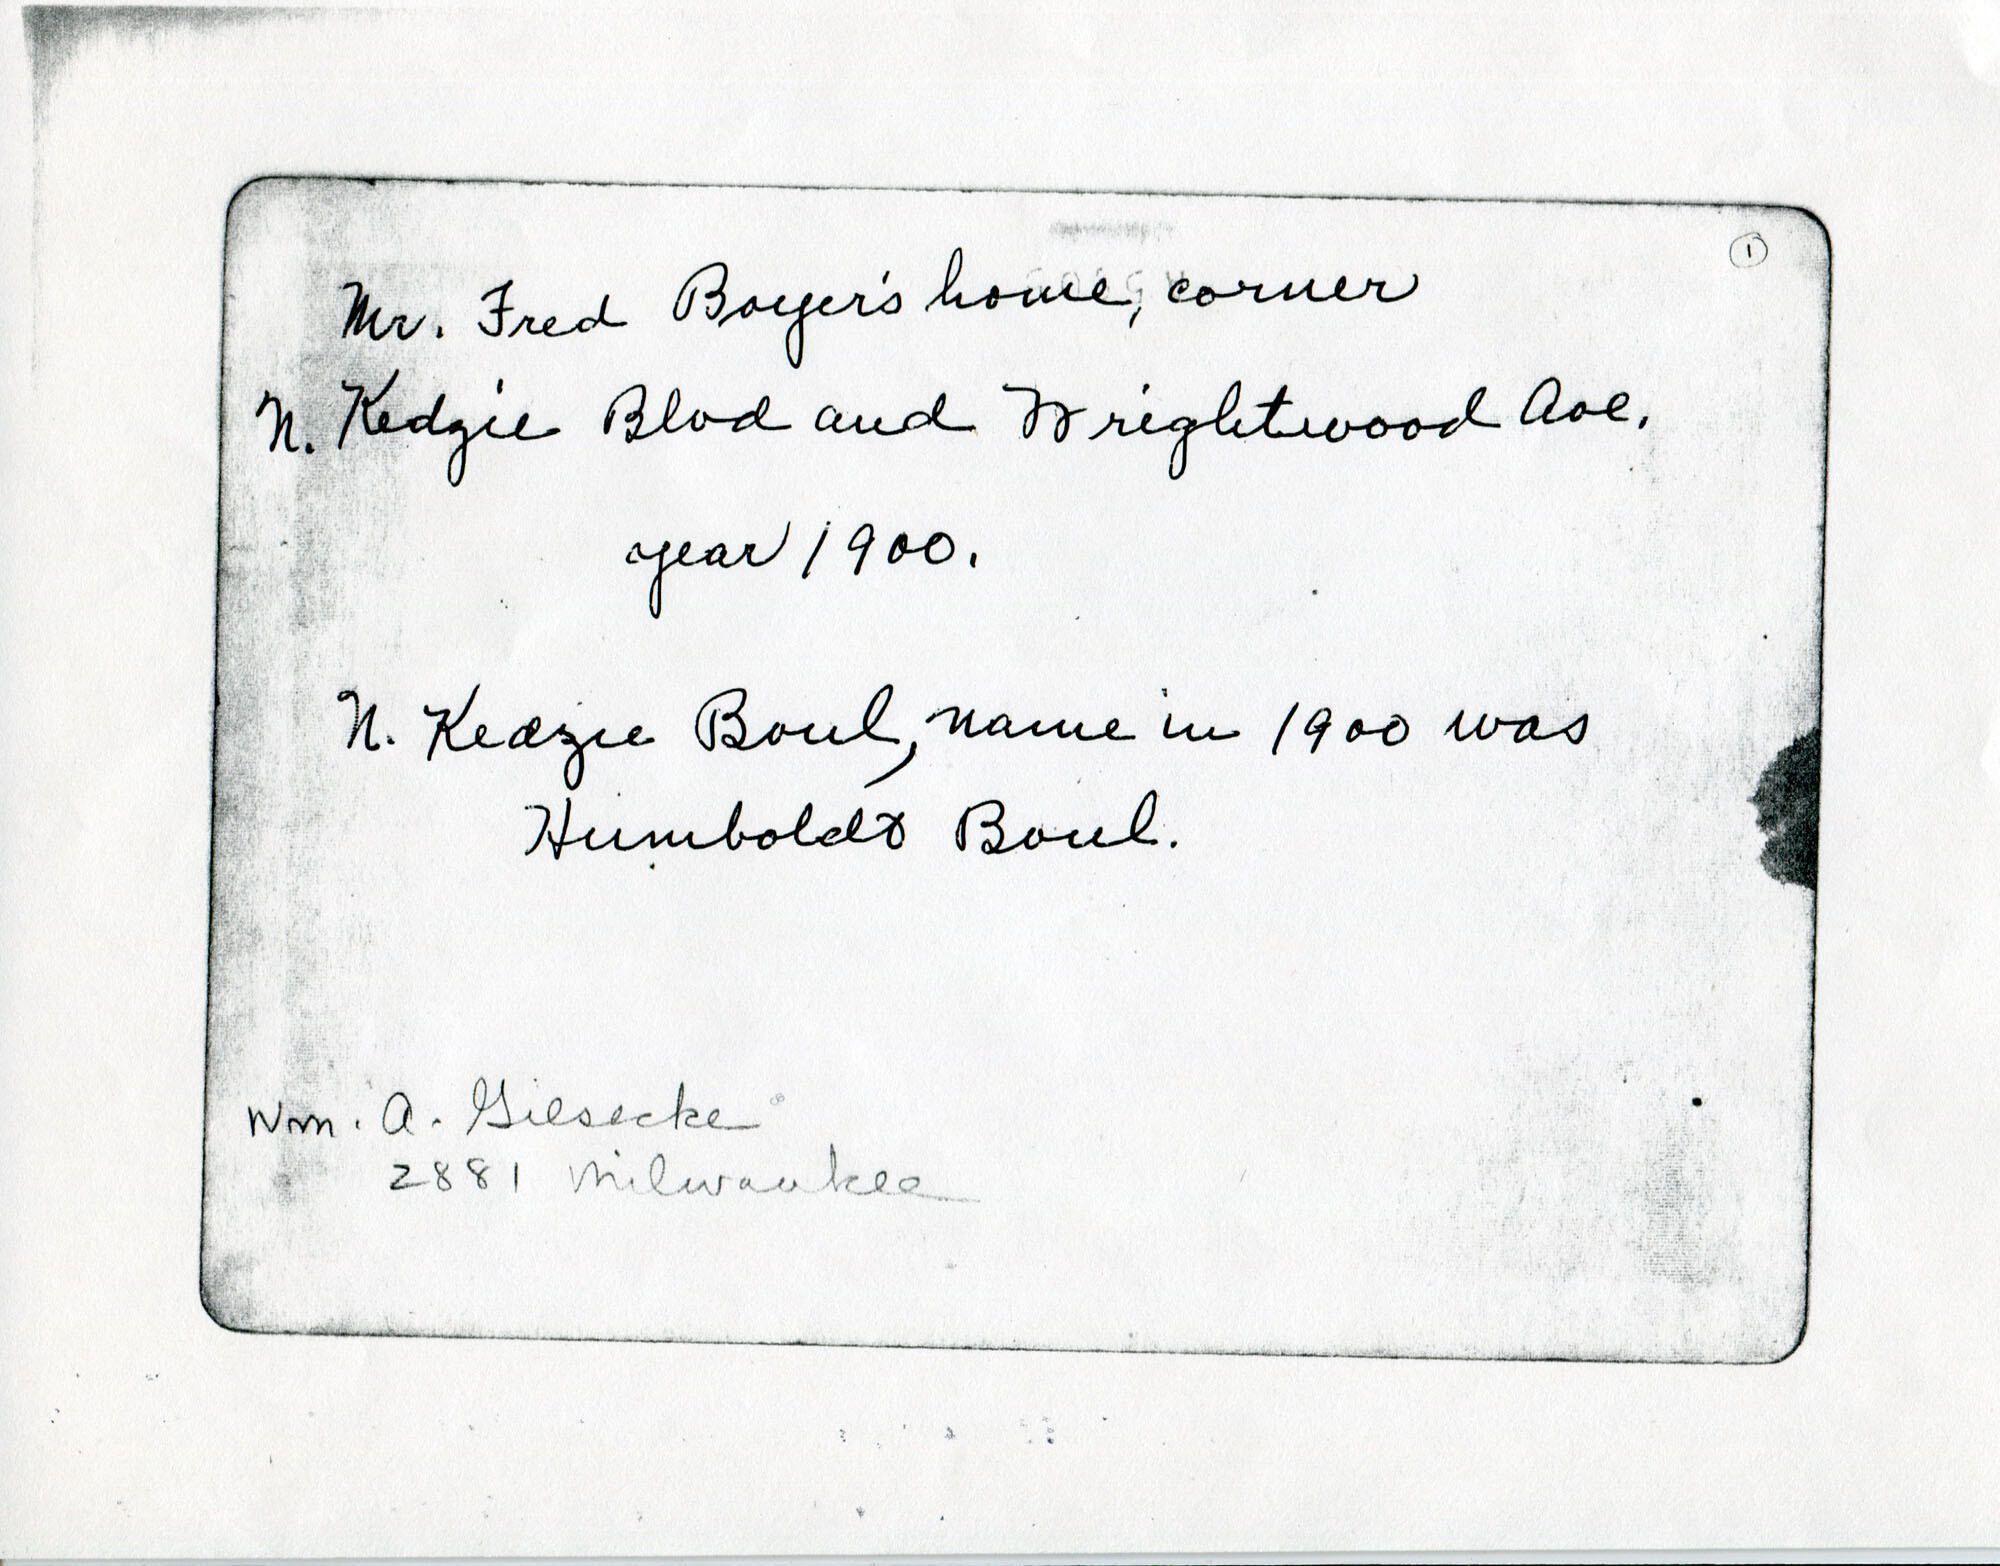 1
Mr. Fred Boyer's home, corner
N. Kedzie Blvd and Wrightwood Ave.
year 1900.
N. Kedzie Boul, name in 1900 was
Humboldt Boul.
Wm. A. Giesecke
2881 Milwaukee